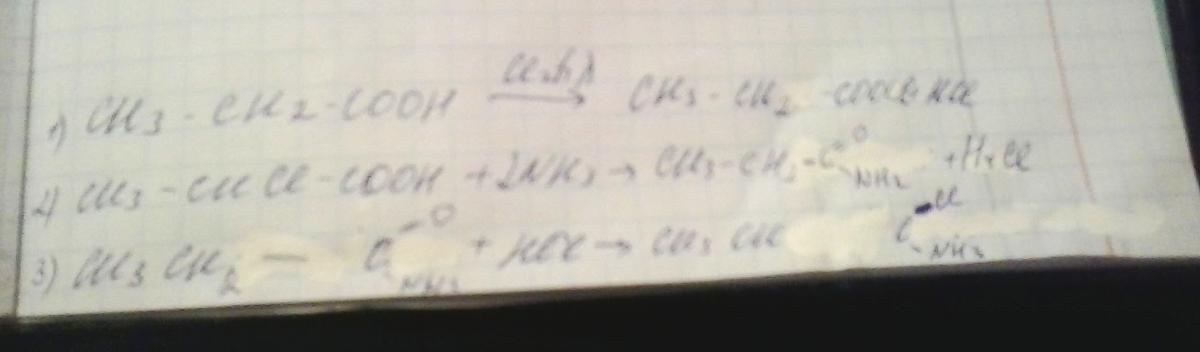 1) CH3 - CH2 - COOH → CH3 - CH2 -COOCl+HCl
2) CH3 - CHCl - COOH + 2NH3 → CH3 - CH2 - C O NH2 + HCl
3) CH3 CH2 — C O NH2 + HCl → CH3 CH C Cl NH2